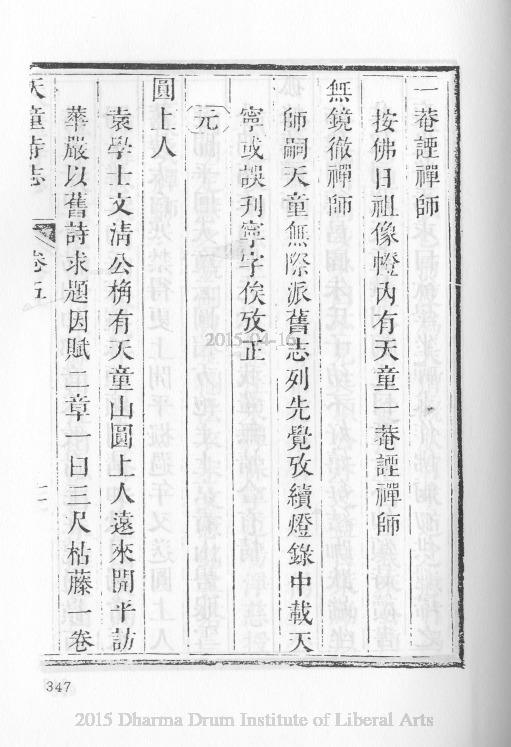 一菴諲禪師
按佛日祖像燈內有天童一菴諲禪師
無鏡徹禪師
師嗣天童無際派舊志列先覺攷續燈錄中載天
寧或誤刋寧字俟攷正
元
圓上人
袁學士文清公桷有天童山圓上人遠來開平訪
華嚴以舊詩求題因賦二章一曰三尺枯藤一卷
天童寺志
卷五
二
347
2015-04-16
2015 Dharma Drum Institute of Liberal Arts